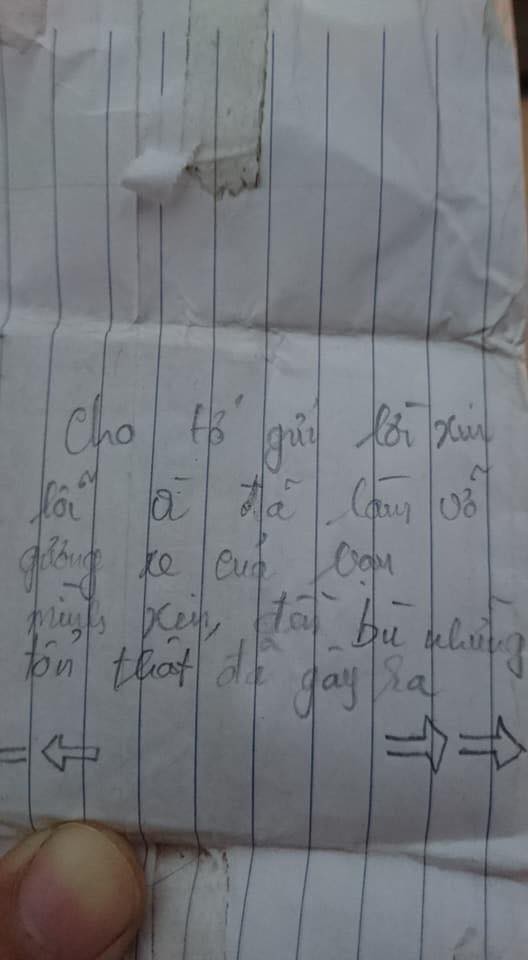 Cho tớ gửi lời xin
lỗi vì đã làm vỡ
gương xe của bạn
mình xin, đền bù những
tổn thất đã gây ra